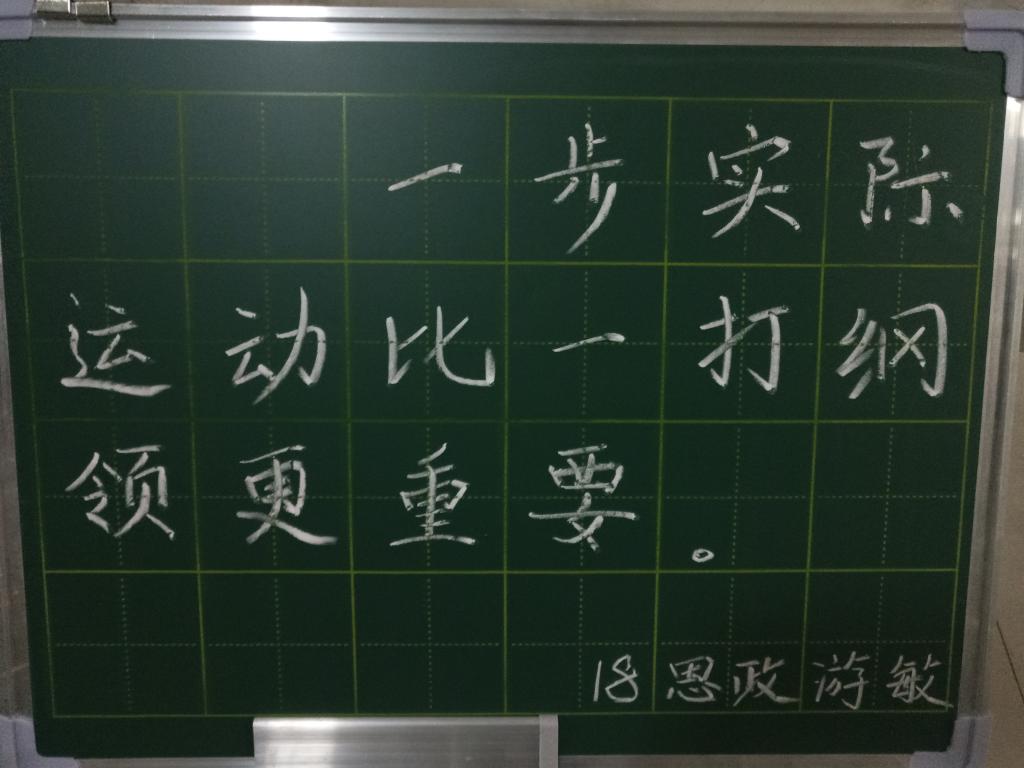 一步实际
运动比一打纲
领更重要。
18思政游敏